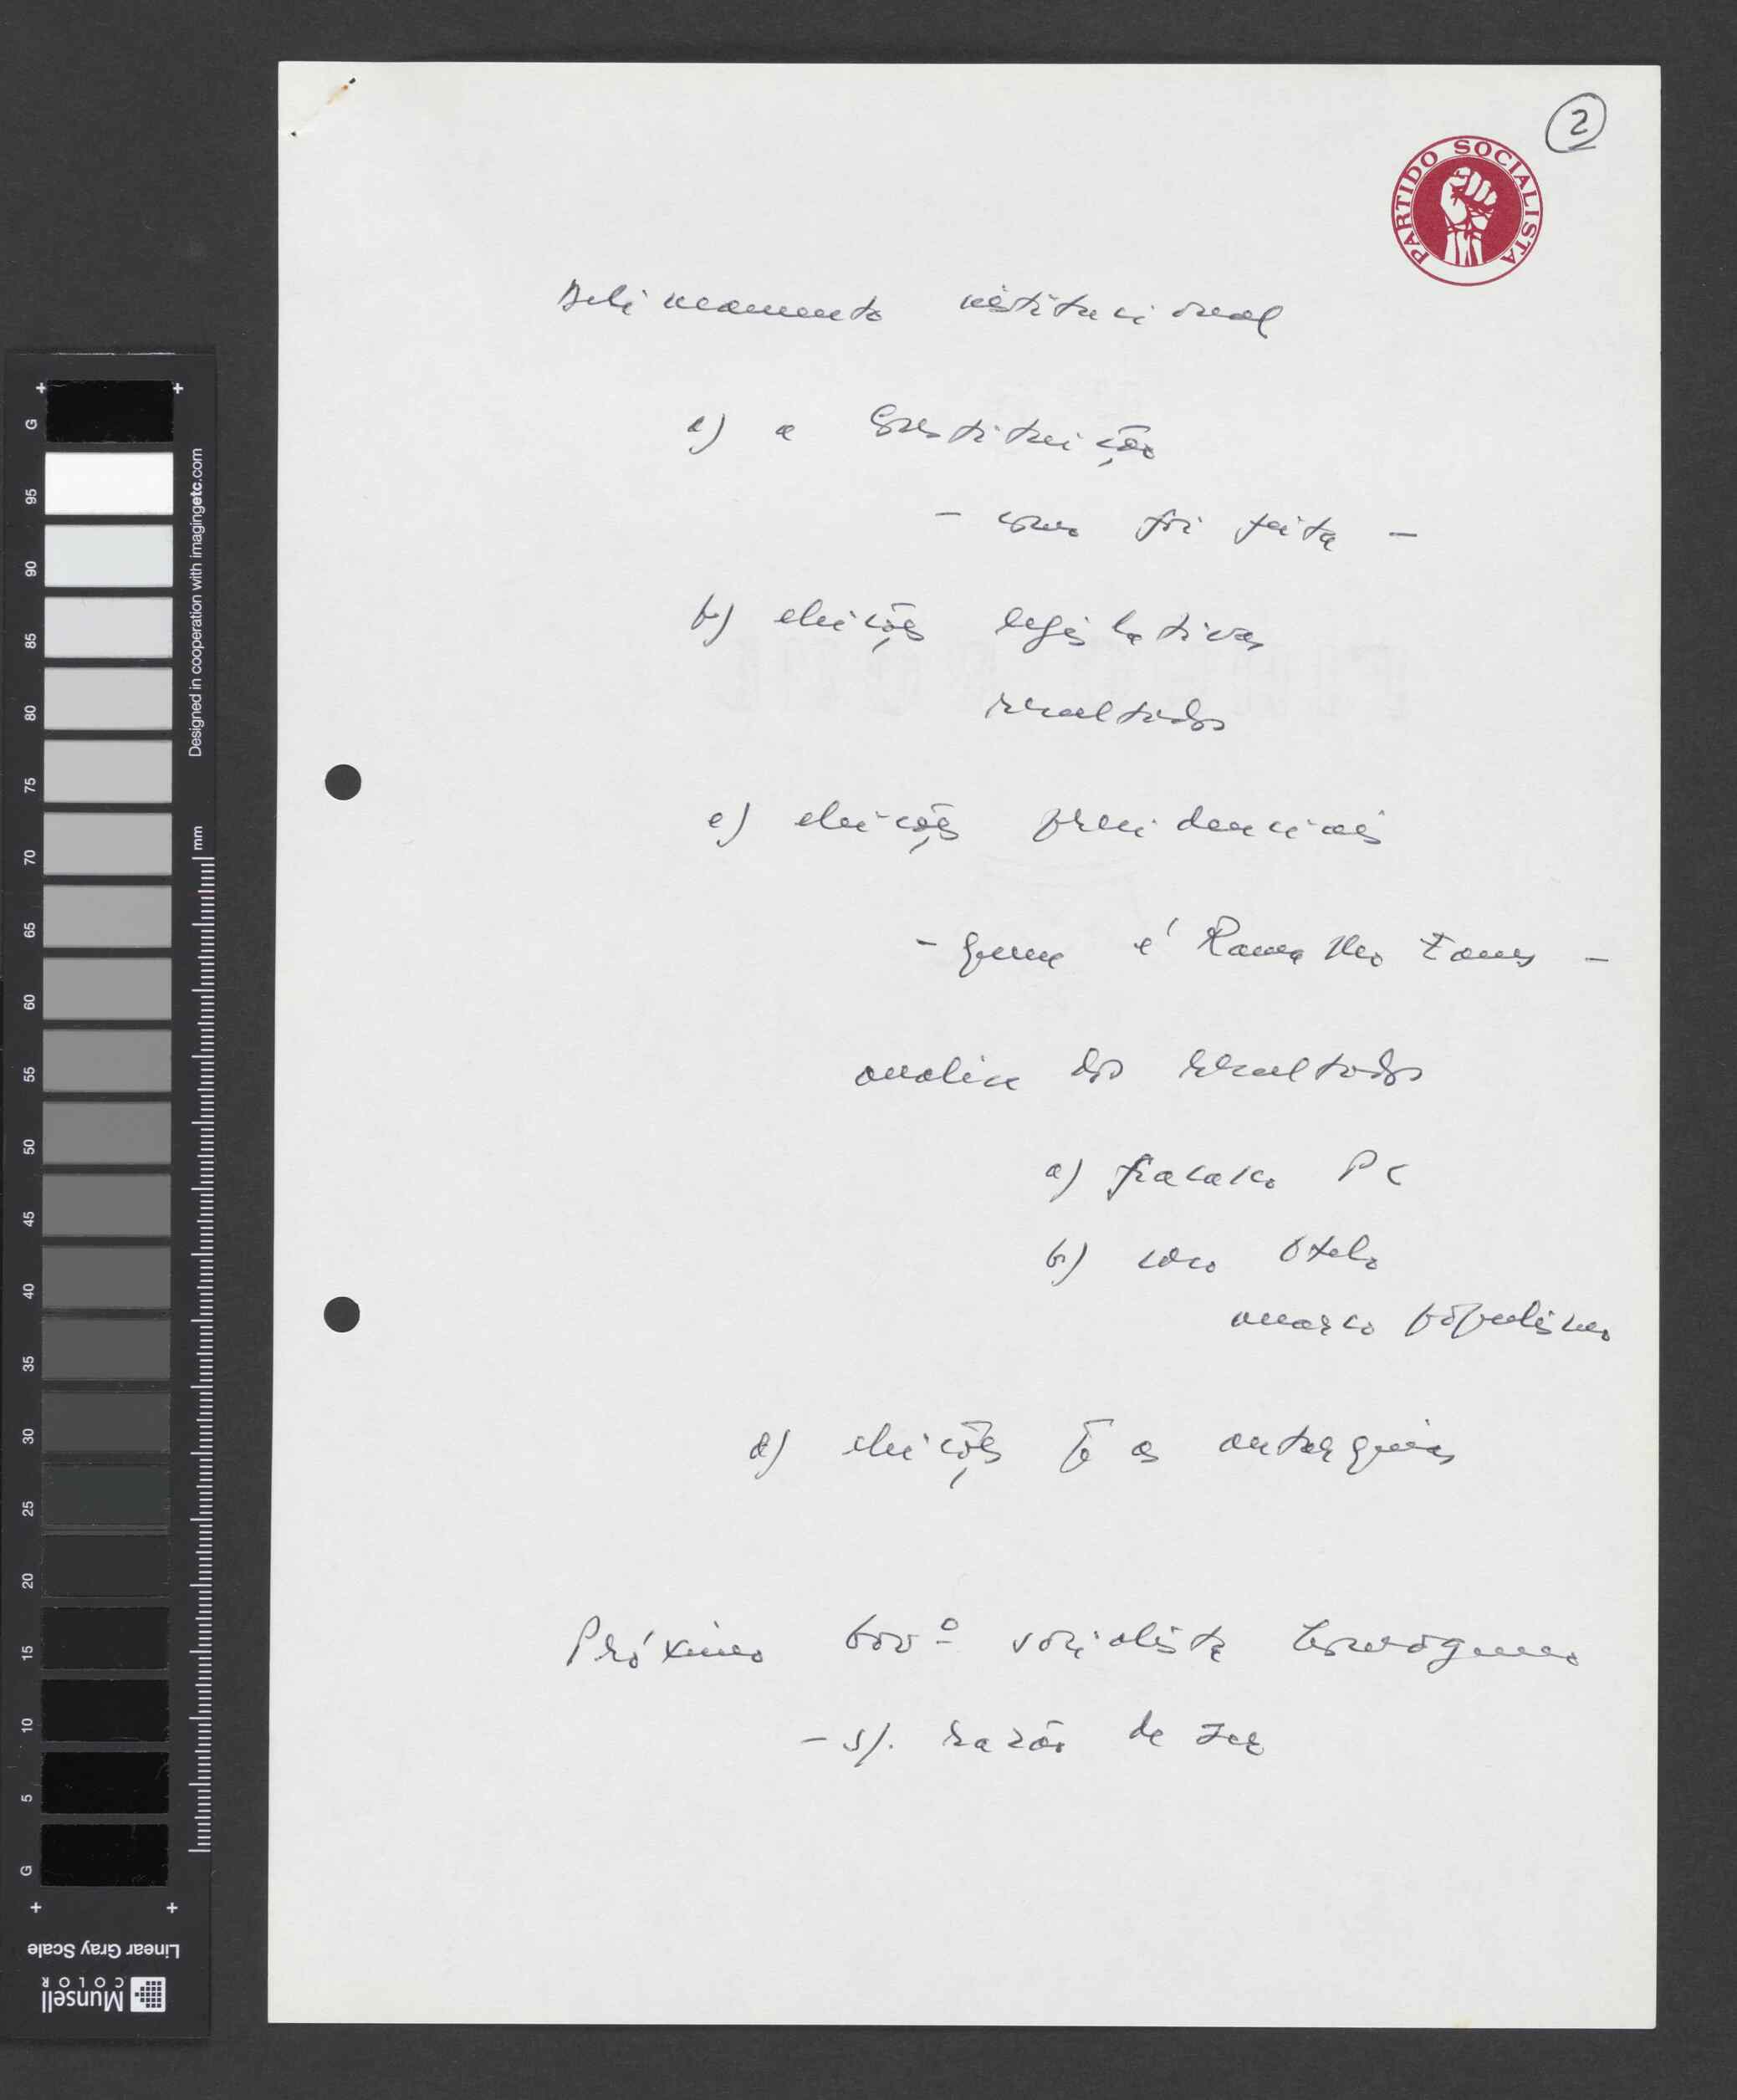 2
PARTIDO SOCIALISTA
Delineamento institucional
a) a Constituição
- como foi feita -
b) eleições legislativas
resultados
c) eleições presidenciais
- quem é Ramalho Eanes -
analise dos resultados
a) fracasso PC
b) caso Otelo
anarco populismo
d) eleições p. as autarquias
Próximo Govº socialista homogéneo
- s/. razão de ser
G 95 90 85 80 75 70 65 60 55 50 45 40 35 30 25 20 15 10 5 G
Designed in cooperation with imagingetc.com
mm
Linear Gray Scale
Munsell
COLOR